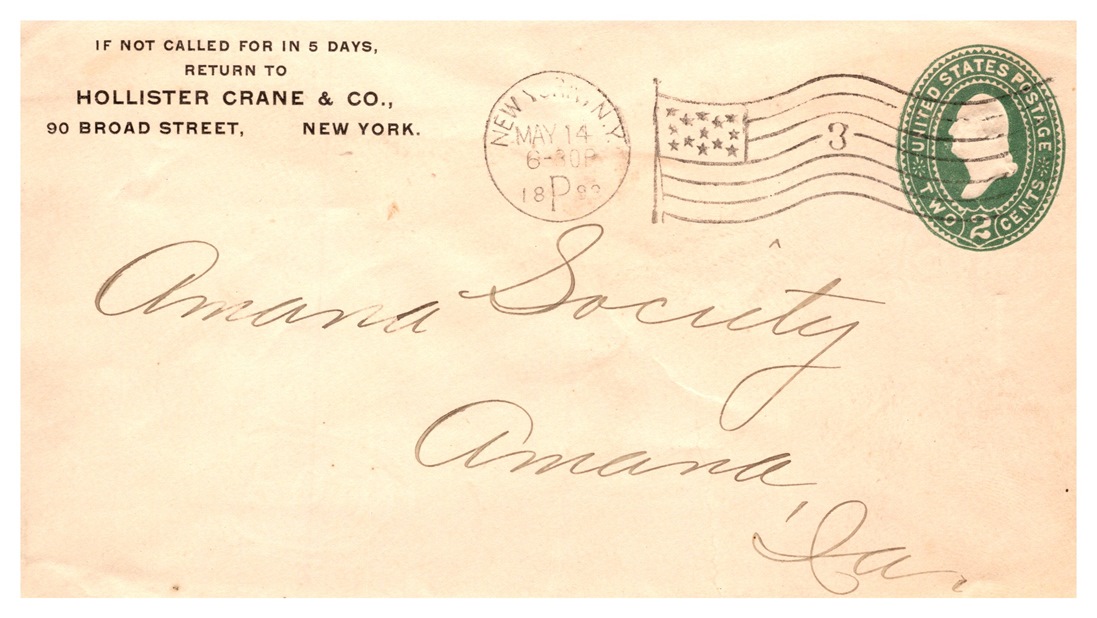 IF NOT CALLED FOR IN 5 DAYS,
RETURN TO
HOLLISTER CRANE & CO.,
90 BROAD STREET, NEW YORK.
NEW YORK, N.Y.
MAY 14
6-30P
18 P
3
UNITED STATES POSTAGE
TWO 2 CENTS
Amana Society
Amana,
Ia.